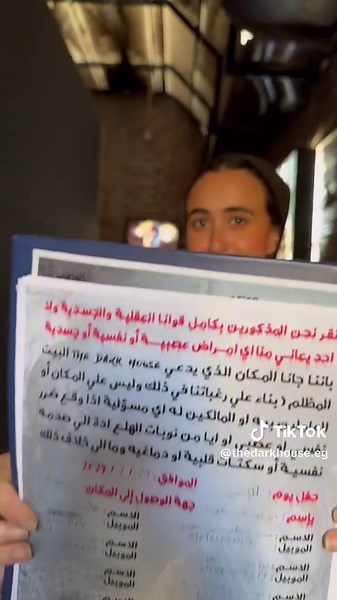 نقر نحن المذكورين بكامل قوانا العقلية والجسدية ولا
احد يعاني منا اي امراض عصبية أو نفسية أو جسدية
باننا جانا المكان الذي يدعي THE DARK HOUSE البيت
المظلم ( بناء علي رغباتنا في ذلك وليس علي المكان أو
أو المالكين له اي مسؤلية اذا وقع ضرر
نفسي أو عصبي او ايا من نوبات الهلع ادة الي صدمه
نفسية أو سكتات قلبية او دماغية ومالي خلاف ذلك
حفل يوم: الموافق:
بإسم: جهة الوصول إلى المكان
الاسم: الاسم:
الموبيل: الموبيل:
الاسم: الاسم:
الموبيل: الموبيل:
الاسم: الاسم:
الموبيل:
TikTok
@thedarkhouse.eg